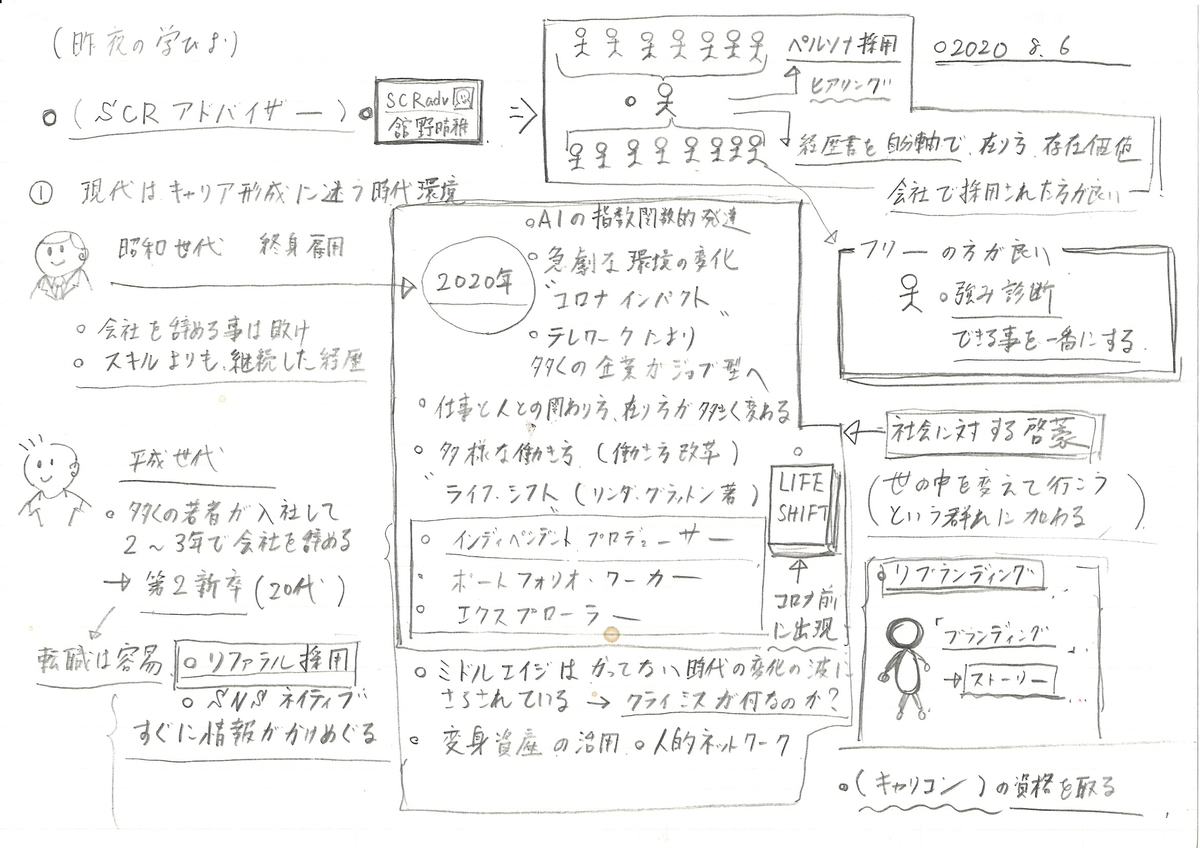 (昨夜の学びよ)
○2020 8.6
○(SCRアドバイザー)
SCRadv
舘野晴雅
ペルソナ採用
ヒアリング
経歴書を自分軸で、在り方、存在価値
会社で採用された方が良い
① 現代はキャリア形成に迷う時代環境
昭和世代 終身雇用
○会社を辞める事は敗け
○スキルよりも、継続した経歴
2020年
○AIの指数関数的発達
○急劇な環境の変化
"コロナインパクト"
○テレワークにより
多くの企業がジョブ型へ
○仕事と人との関わり方、在り方が大きく変わる
○多様な働き方(働き方改革)
"ライフ・シフト"(リンダ・グラットン著)
○インディペンデント プロデューサー
○ポートフォリオ・ワーカー
○エクスプローラー
LIFE
SHIFT
コロナ前
に出現
○ミドルエイジはかってない時代の変化の波に
さらされている → クライミスが何なのか?
○変身資産の活用 ○人的ネットワーク
フリーの方が良い
○強み診断
できる事を一番にする
社会に対する啓蒙
(世の中を変えて行こう
という群れに加わる)
○リブランディング
「ブランディング
→ストーリー
○(キャリコン)の資格を取る
平成世代
○多くの若者が入社して
2～3年で会社を辞める
→第2新卒(20代)
転職は容易
○リファラル採用
○SNSネイティブ
すぐに情報がかけめぐる